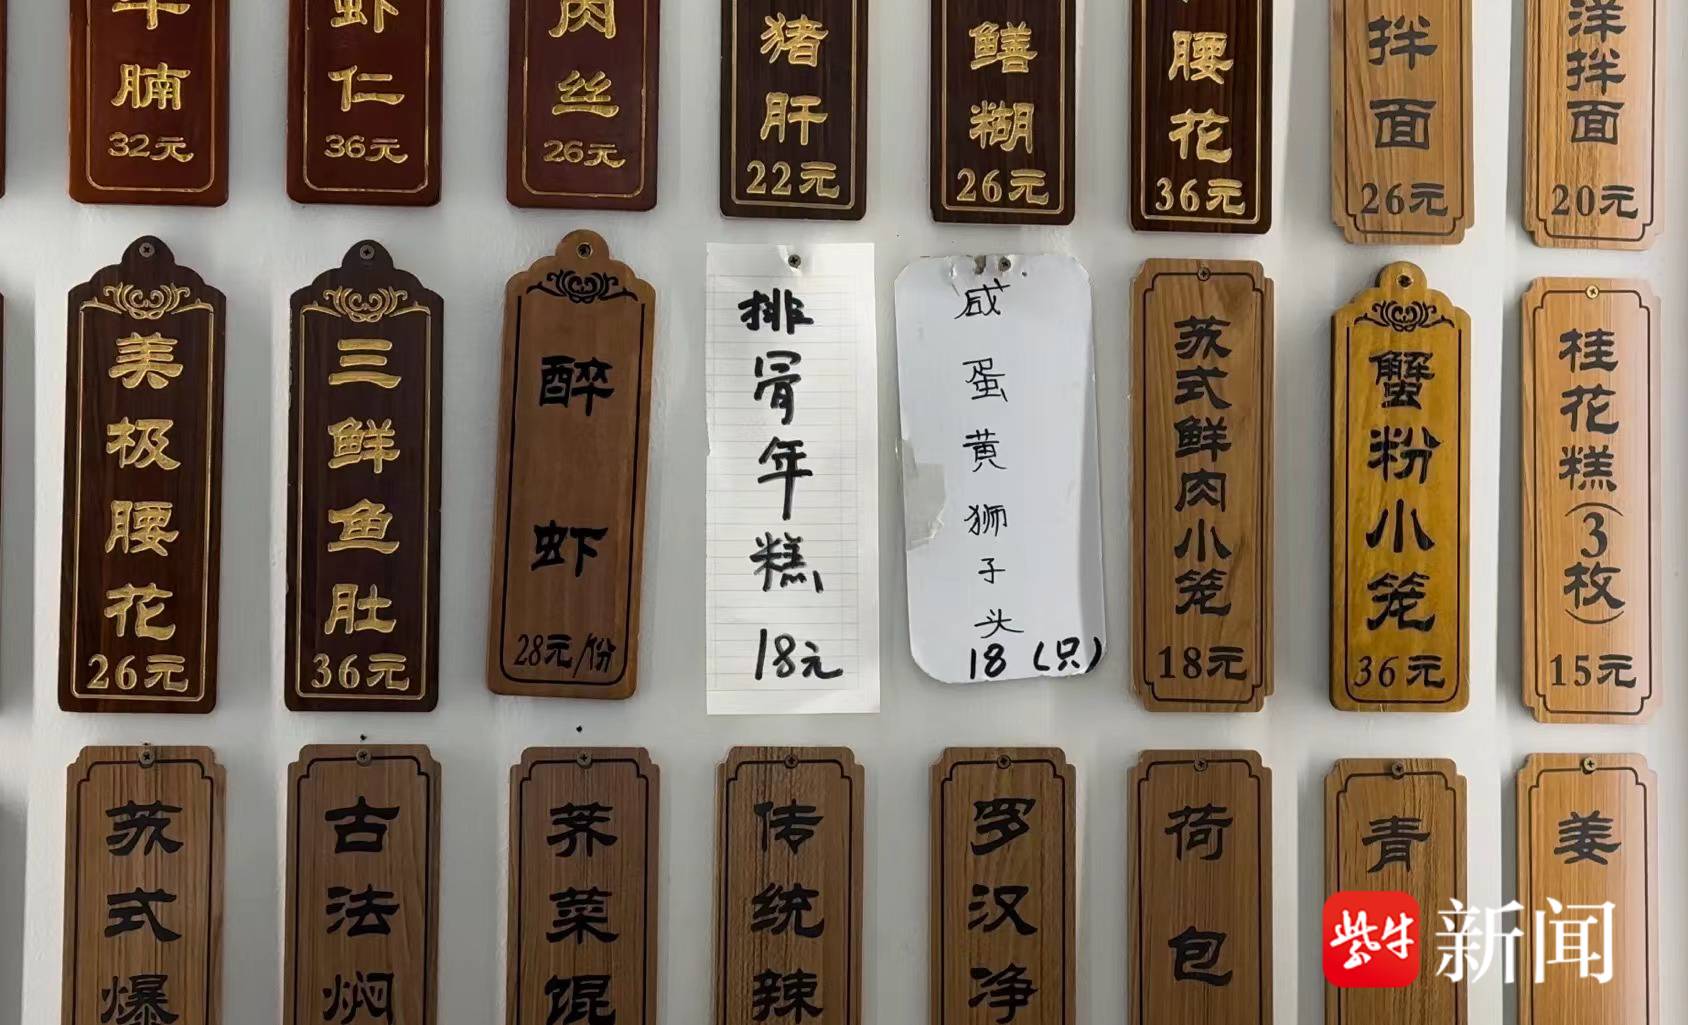 腩
32元
虾
仁
36元
肉
丝
26元
猪
肝
22元
鳝
糊
26元
腰
花
36元
拌
面
26元
洋
拌
面
20元
美
极
腰
花
26元
三
鲜
鱼
肚
36元
醉
虾
28元/份
排
骨
年
糕
18元
咸
蛋
黄
狮
子
头
18(只)
苏
式
鲜
肉
小
笼
18元
蟹
粉
小
笼
36元
桂
花
糕
(3
枚)
15元
苏
式
爆
古
法
焖
荠
菜
馄
传
统
辣
罗
汉
净
荷
包
青
姜
紫牛
新闻